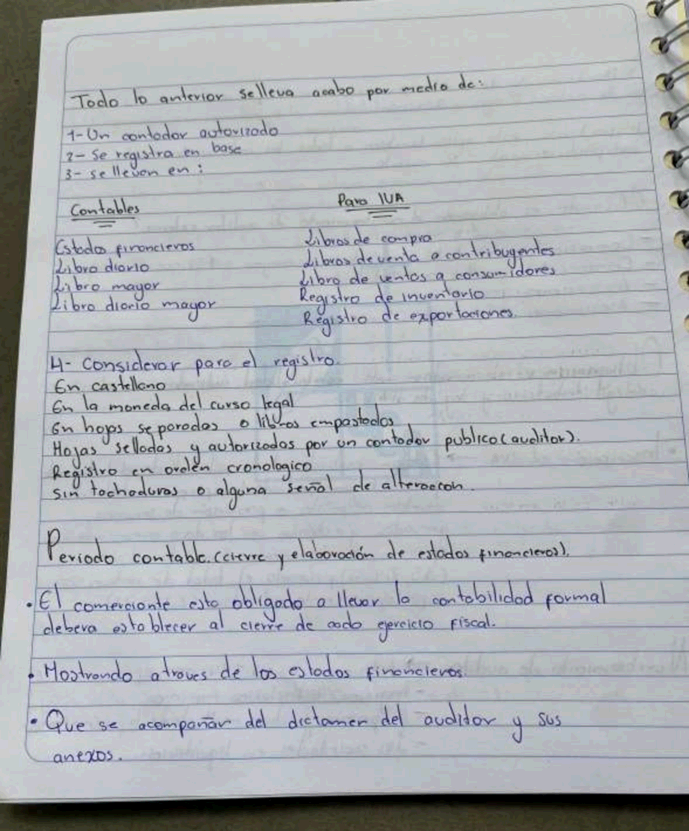 Todo lo anterior se lleva acabo por medio de:
1- Un contador autorizado
2- Se registra en base
3- se lleven en:
Contables
Estados financieros
Libro diario
Libro mayor
Libro diario mayor
Para IVA
Libros de compra
Libros de venta a contribuyentes
Libro de ventas a consumidores
Registro de inventario
Registro de exportaciones
4- Considerar para el registro.
En castellano
En la moneda del curso legal
En hojas separadas o libros empastados
Hojas selladas y autorizadas por un contador publico (auditor).
Registro en orden cronologico
sin tachaduras o alguna señal de alteracion.
Periodo contable. (cierre y elaboración de estados financieros).
• El comerciante esta obligado a llevar la contabilidad formal
debera establecer al cierre de cada ejercicio fiscal.
• Mostrando atraves de los estados financieros.
• Que se acompañar del dictamen del auditor y sus
anexos.